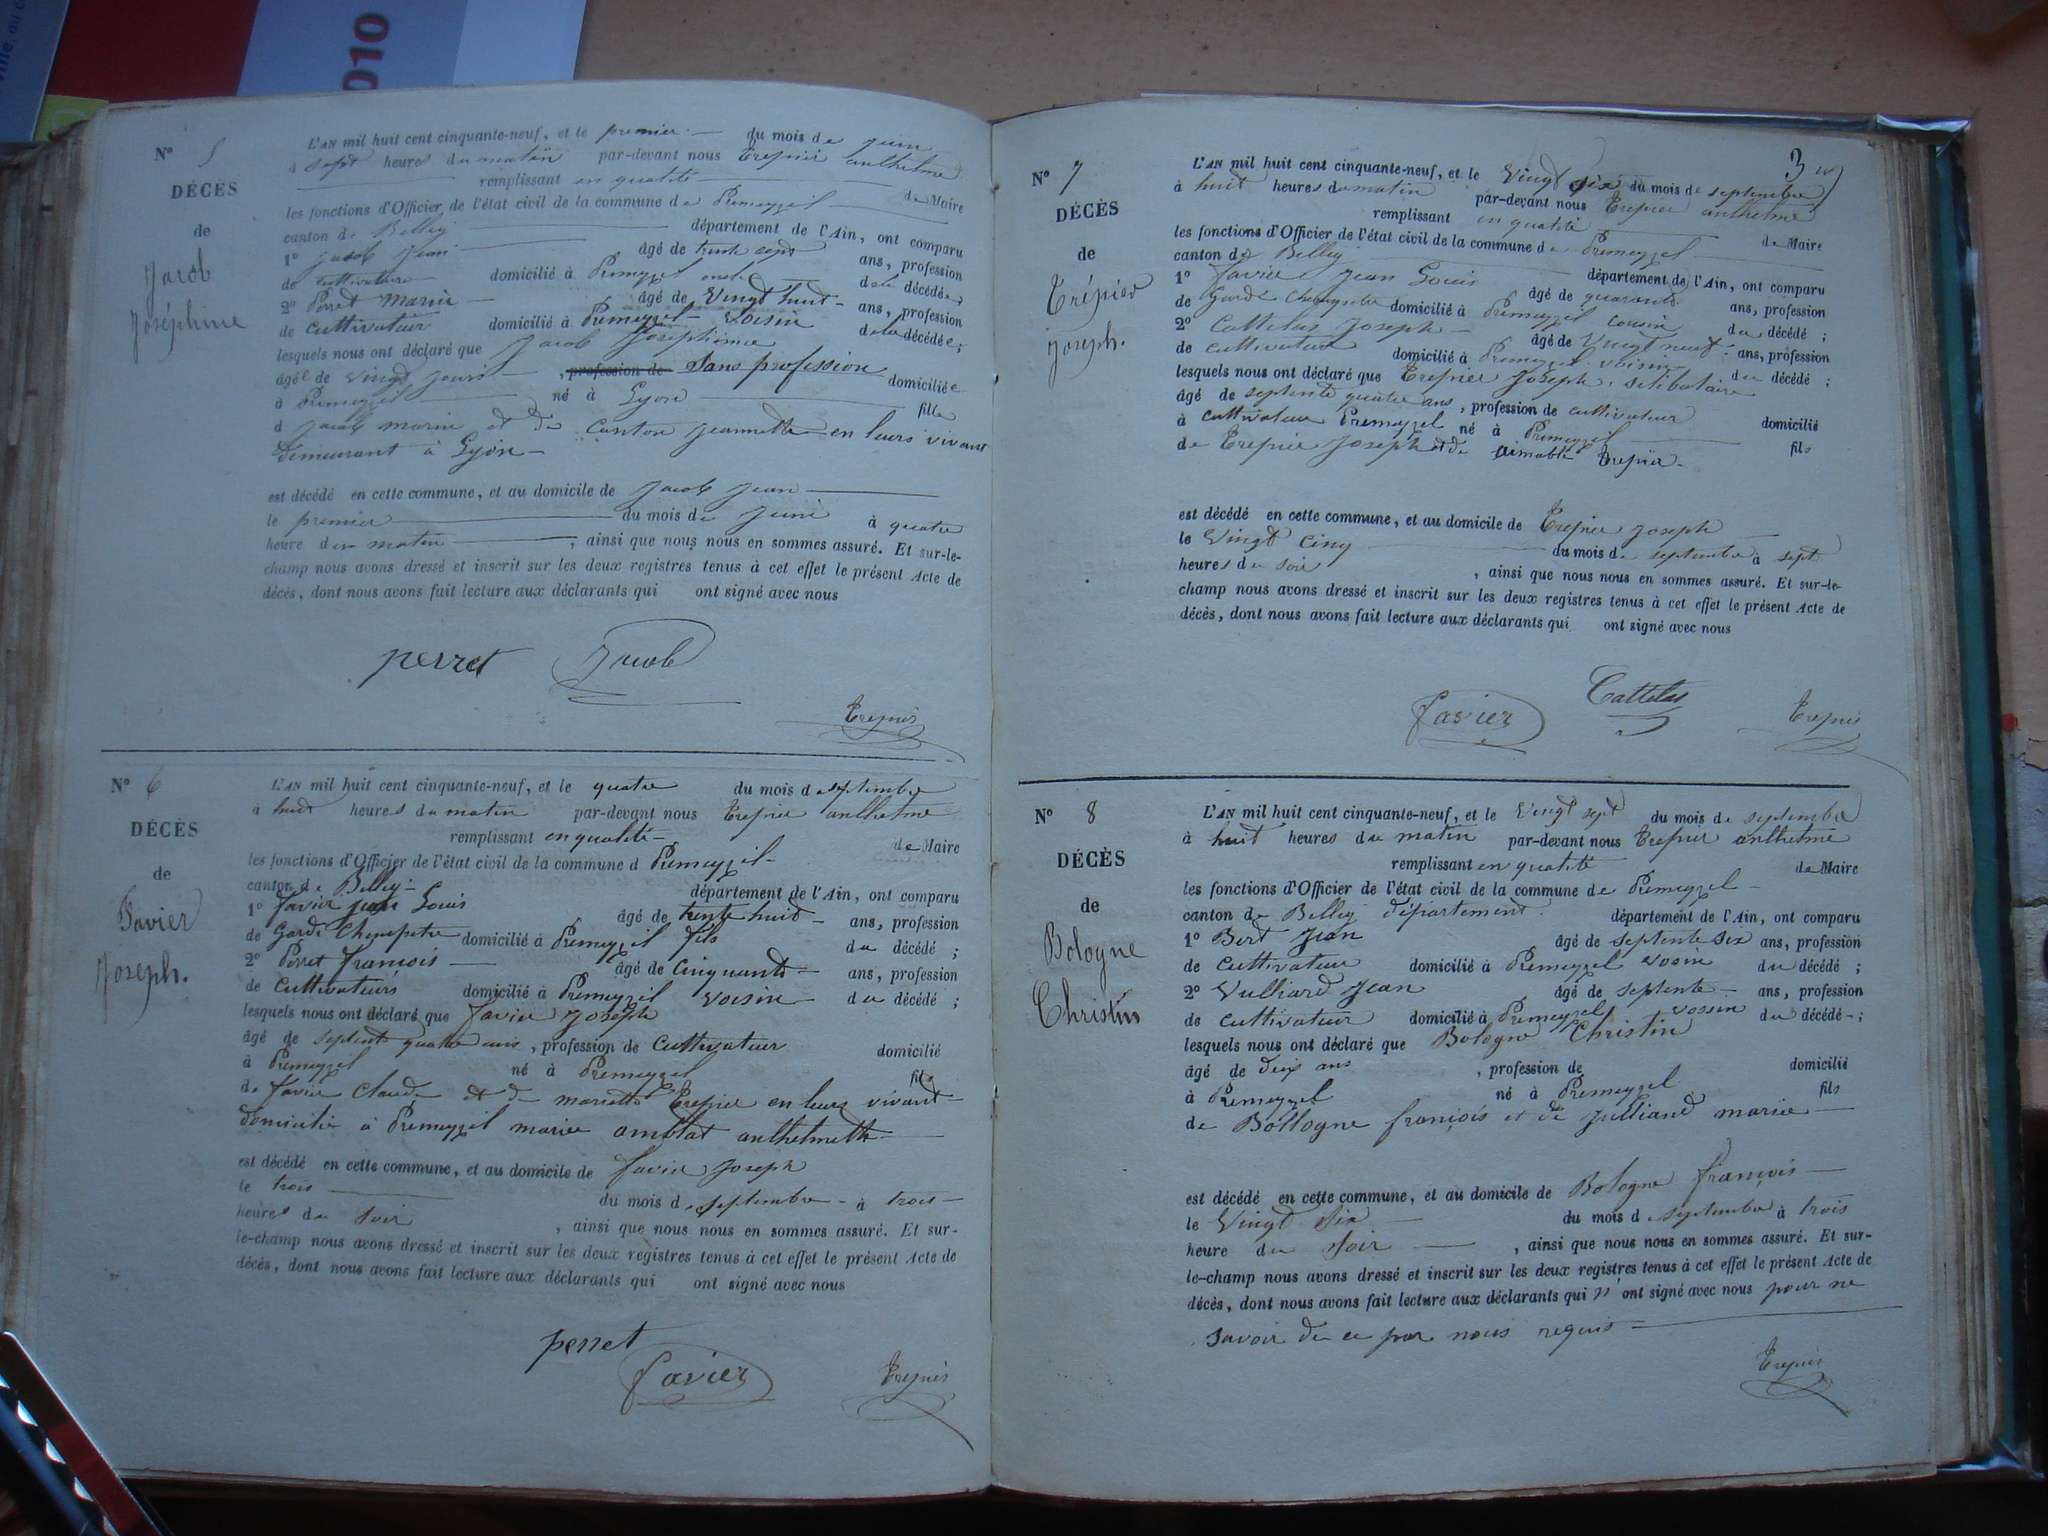 010
N° 5
DÉCÈS
de
Jacob
Joséphine
L'AN mil huit cent cinquante-neuf, et le premier du mois de juin
à sept heures du matin par-devant nous Trepier anthelme
remplissant en qualité de Maire
les fonctions d'Officier de l'état civil de la commune de Premeyzel
canton de Belley département de l'Ain, ont comparu
1° Jacob Jean âgé de trente ans, profession
de cultivateur domicilié à Premeyzel oncle de la décédée,
2° Perret marin âgé de Vingt huit ans, profession
de cultivateur domicilié à Premeyzel Voisin de la décédée;
lesquels nous ont déclaré que Jacob Josephinne
âgée de vingt jours, profession de Sans profession domiciliée
à Premeyzel né à Lyon fille
d Jacob marin et de Canton Jeannette en leurs vivant
demeurant à Lyon
est décédé en cette commune, et au domicile de Jacob Jean
le premier du mois de Juin à quatre
heure du matin, ainsi que nous nous en sommes assuré. Et sur-le-
champ nous avons dressé et inscrit sur les deux registres tenus à cet effet le présent Acte de
décès, dont nous avons fait lecture aux déclarants qui ont signé avec nous
perret Jacob
Trepier
N° 6
DÉCÈS
de
Favier
Joseph.
L'AN mil huit cent cinquante-neuf, et le quatre du mois de septembre
à huit heures du matin par-devant nous Trepier anthelme
remplissant en qualité de Maire
les fonctions d'Officier de l'état civil de la commune d Premeyzel
canton de Belley département de l'Ain, ont comparu
1° Favier jean Louis âgé de trente huit ans, profession
de Garde Champetre domicilié à Premeyzel fils du décédé;
2° Perret françois âgé de Cinquante ans, profession
de Cultivateurs domicilié à Premeyzel voisin du décédé;
lesquels nous ont déclaré que Favier Joseph
âgé de septente quatre ans, profession de Cultivateur domicilié
à Premeyzel né à Premeyzel fils
de Favier Claude et de mariette Trepier en leurs vivant
domicilié à Premeyzel mariée amblat anthelmette
est décédé en cette commune, et au domicile de Favier Joseph
le trois du mois de septembre à trois
heures du soir, ainsi que nous nous en sommes assuré. Et sur-
le-champ nous avons dressé et inscrit sur les deux registres tenus à cet effet le présent Acte de
décès, dont nous avons fait lecture aux déclarants qui ont signé avec nous
perret
Favier Trepier
3
N° 7
DÉCÈS
de
Trépier
Joseph.
L'AN mil huit cent cinquante-neuf, et le Vingt six du mois de septembre
à huit heures du matin par-devant nous Trepier anthelme
remplissant en qualité de Maire
les fonctions d'Officier de l'état civil de la commune de Premeyzel
canton de Belley département de l'Ain, ont comparu
1° Favier Jean Louis âgé de quarante ans, profession
de Garde Champetre domicilié à Premeyzel cousin du décédé;
2° Cattelas Joseph âgé de Vingt neuf ans, profession
de cultivateur domicilié à Premeyzel voisin du décédé;
lesquels nous ont déclaré que Trepier Joseph, selibataire
âgé de septente quatre ans, profession de cultivateur domicilié
à cultivateur Premeyzel né à Premeyzel fils
de Trepier Joseph et de aimable Trepier
est décédé en cette commune, et au domicile de Trepier Joseph
le Vingt Cinq du mois de septembre à sept
heures du soir, ainsi que nous nous en sommes assuré. Et sur-le-
champ nous avons dressé et inscrit sur les deux registres tenus à cet effet le présent Acte de
décès, dont nous avons fait lecture aux déclarants qui ont signé avec nous
Favier Cattelas Trepier
N° 8
DÉCÈS
de
Bologne
Christin
L'AN mil huit cent cinquante-neuf, et le Vingt sept du mois de septembre
à huit heures du matin par-devant nous Trepier anthelme
remplissant en qualité de Maire
les fonctions d'Officier de l'état civil de la commune de Premeyzel
canton de Belley département département de l'Ain, ont comparu
1° Bert Jean âgé de septente six ans, profession
de Cultivateur domicilié à Premeyzel vosin du décédé;
2° Vulliard Jean âgé de septente ans, profession
de cultivateur domicilié à Premeyzel vossin du décédé;
lesquels nous ont déclaré que Bologne Christin
âgé de deux ans, profession de domicilié
à Premeyzel né à Premeyzel fils
de Bollogne françois et de Julliand marie
est décédé en cette commune, et au domicile de Bologne françois
le Vingt Six du mois d septembre à trois
heure du soir, ainsi que nous nous en sommes assuré. Et sur-
le-champ nous avons dressé et inscrit sur les deux registres tenus à cet effet le présent Acte de
décès, dont nous avons fait lecture aux déclarants qui n'ont signé avec nous pour ne
savoir de ce par nous requis
Trepier